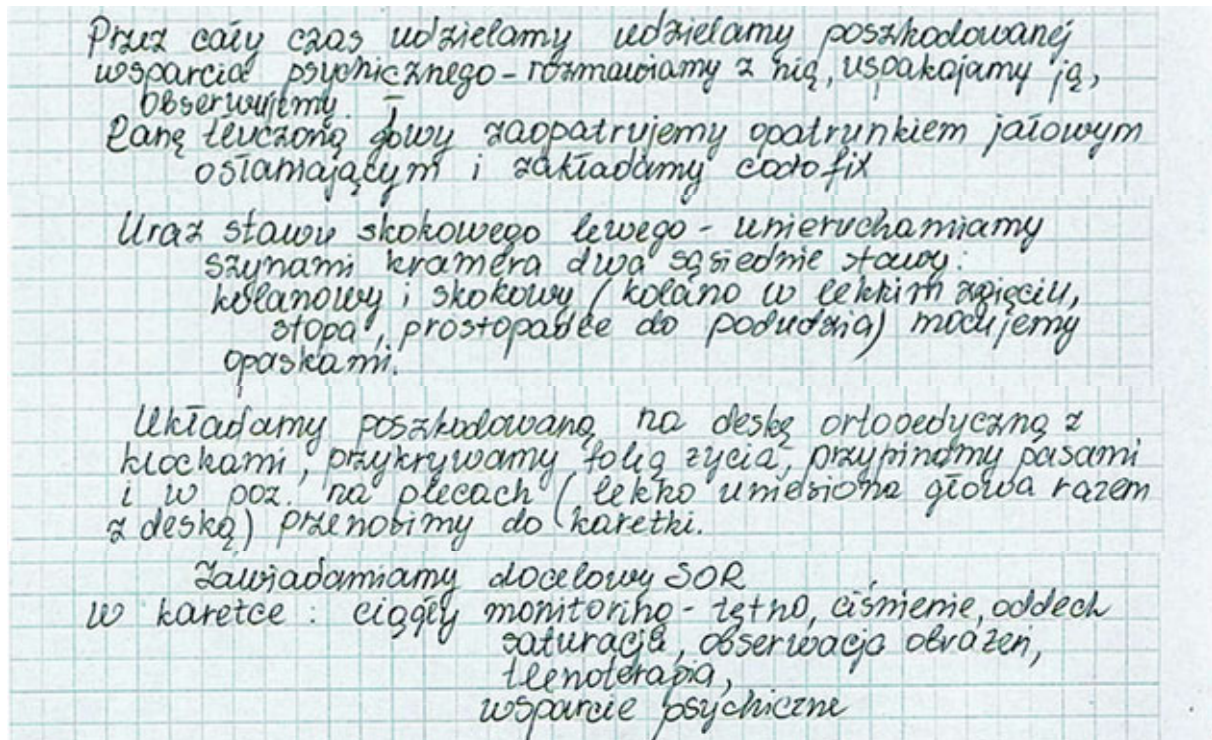 Przez cały czas udzielamy udzielamy poszkodowanej
wsparcia psychicznego - rozmawiamy z nią, uspakajamy ją,
obserwujemy.
Ranę tłuczoną głowy zaopatrujemy opatrunkiem jałowym
osłaniającym i zakładamy codofix
Uraz stawu skokowego lewego - unieruchamiamy
szynami kramera dwa sąsiednie stawy:
kolanowy i skokowy (kolano w lekkim zgięciu,
stopa, prostopadle do podudzia) mocujemy
opaskami.
Układamy poszkodowaną na deskę ortopedyczną z
klockami, przykrywamy folią życia, przypinamy pasami
i w poz. na plecach (lekko uniesiona głowa razem
z deską) przenosimy do karetki.
Zawiadamiamy docelowy SOR
w karetce: ciągły monitoring - tętno, ciśnienie, oddech
saturacja, obserwacja obrażeń,
tlenoterapia,
wsparcie psychiczne